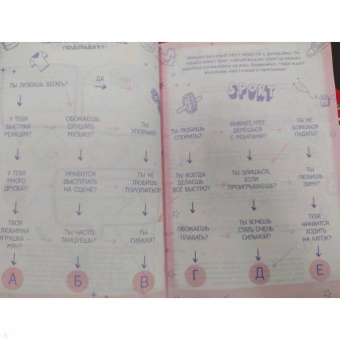 ПОДОЙДЁТ?
ТЫ ЛЮБИШЬ БЕГАТЬ?
ДА
У ТЕБЯ
БЫСТРАЯ
РЕАКЦИЯ?
ОБОЖАЕШЬ
СЛУШАТЬ
МУЗЫКУ?
ТЫ
УПОРНАЯ?
У ТЕБЯ
МНОГО
ДРУЗЕЙ?
НРАВИТСЯ
ВЫСТУПАТЬ
НА СЦЕНЕ?
ТЫ НЕ
ЛЮБИШЬ
ТОРОПИТЬСЯ?
ТВОЯ
ЛЮБИМАЯ
ИГРУШКА –
МЯЧ?
ТЫ ЧАСТО
ТАНЦУЕШЬ?
ТЫ
ГИБКАЯ?
А
Б
В
SPORT
ТЫ ЛЮБИШЬ
СПОРИТЬ?
БЫВАЕТ, ЧТО
ДЕРЁШЬСЯ
С РЕБЯТАМИ?
ТЫ НЕ
БОИШЬСЯ
ПАДАТЬ?
ТЫ ВСЕГДА
ДЕЛАЕШЬ
ВСЁ БЫСТРО?
ТЫ ЗЛИШЬСЯ,
ЕСЛИ
ПРОИГРЫВАЕШЬ?
ТЫ
ЛЮБИШЬ
ЗИМУ?
ОБОЖАЕШЬ
ПЛАВАТЬ?
ТЫ ХОЧЕШЬ
СТАТЬ ОЧЕНЬ
СИЛЬНОЙ?
ТЕБЕ
НРАВИТСЯ
ХОДИТЬ
НА КАТОК?
Г
Д
Е